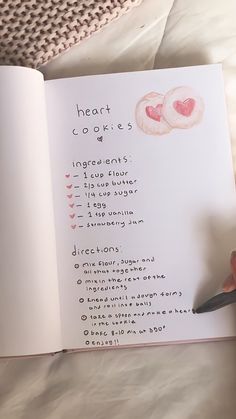 heart
cookies
ingredients:
- 1 cup flour
- 2/3 cup butter
- 1/4 cup sugar
- 1 egg
- 1 tsp vanilla
- strawberry jam
directions:
mix flour, sugar and
all that together
mix in the rest of the
ingredients
knead until a dough forms
and roll into balls
take a spoon and make a heart
in the cookie
bake 8-10 min at 350°
enjoy!!